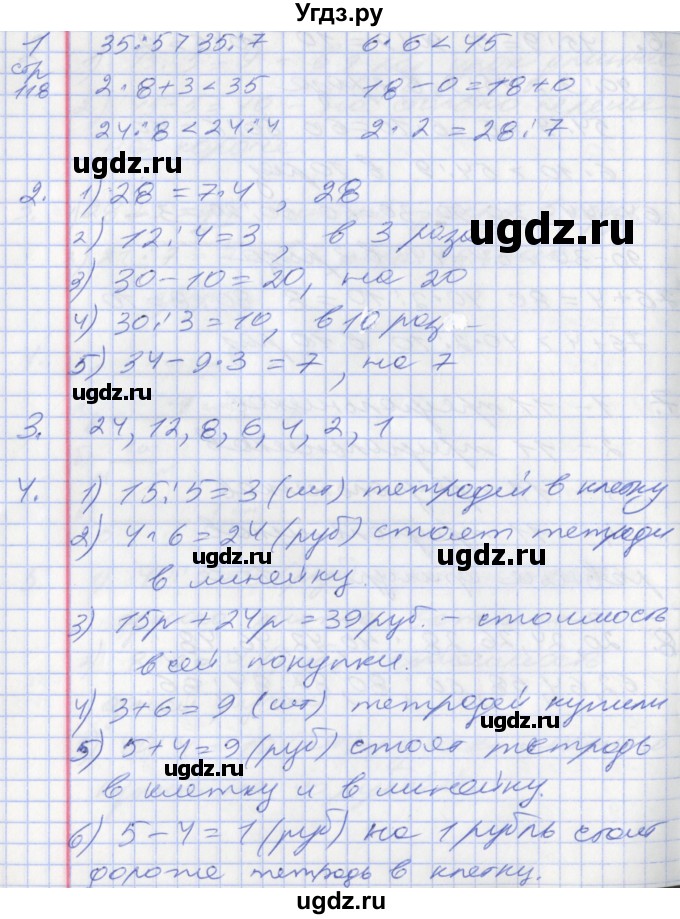 Угдз.ру
1 35:5>35:7 6·6<45
стр 118 2·8+3<35 18-0=18+0
24:8<24:4 2·2=28:7
ugdz.ru
2. 1) 28=7·4, 28
2) 12:4=3, в 3 раза
ugdz.ru
3) 30-10=20, на 20
ugdz.ru
4) 30:3=10, в 10 раз
5) 34-9·3=7, на 7
ugdz.ru
3. 24, 12, 8, 6, 4, 2, 1
4. 1) 15:5=3 (шт) тетрадей в клетку
2) 4·6=24 (руб) стоят тетради
ugdz.ru
в линейку.
ugdz.ru
3) 15р+24р=39 руб. - стоимость
всей покупки.
4) 3+6=9 (шт) тетрадей купили
ugdz.ru
5) 5+4=9 (руб) стоят тетрадь
ugdz.ru
в клетку и в линейку.
6) 5-4=1 (руб) на 1 рубль стоит
дороже тетрадь в клетку.
ugdz.ru